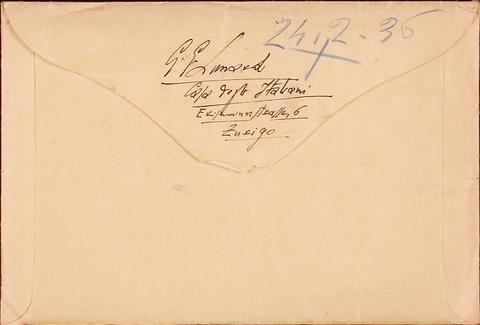 24.2.35
G. E.
Casa degli Italiani
Erismannstrasse 6
Zurigo